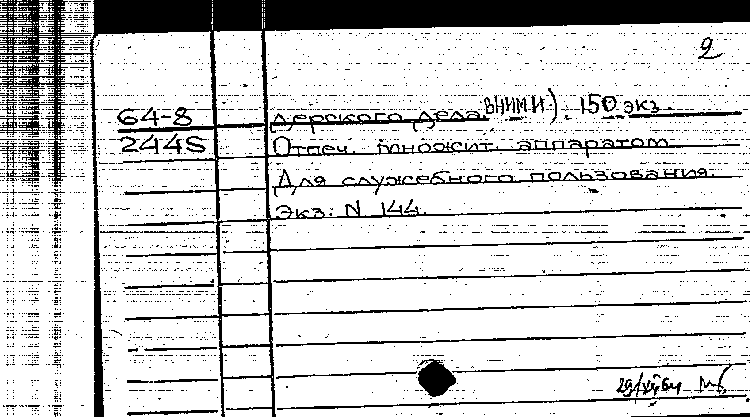 2
64-8 дерского дела. ВНИМИ). 150 экз.
2445 Отпеч. множит. аппаратом.
Для служебного пользования.
Экз: N 144.